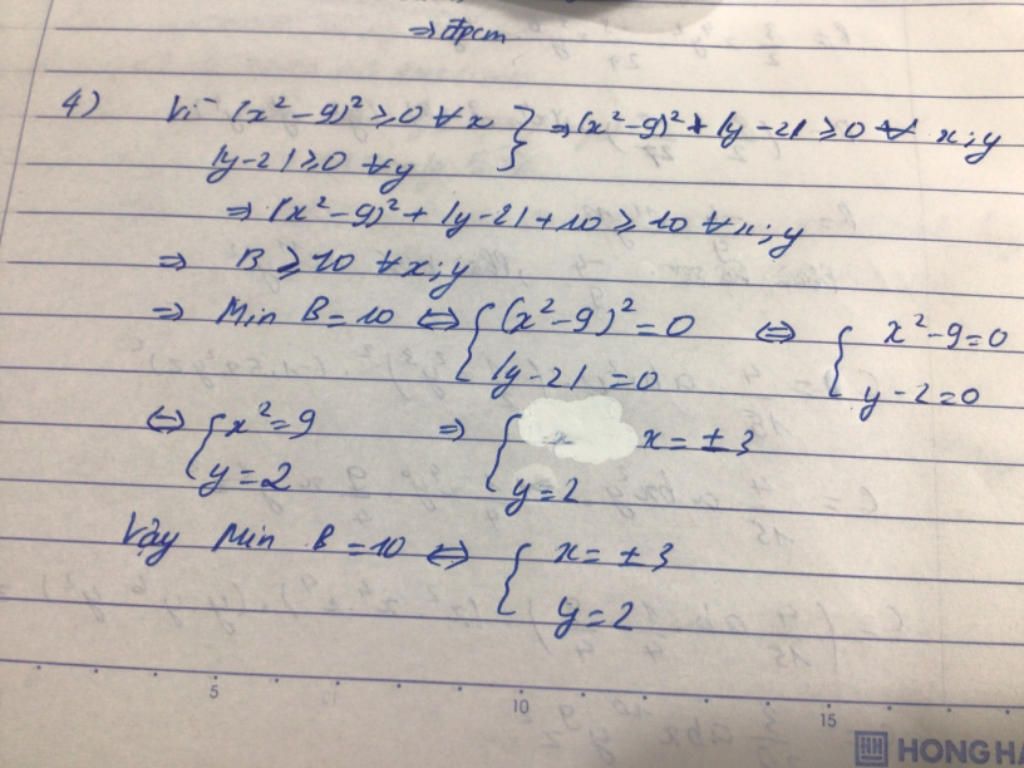 ⇒ đpcm
4) Vì (x² - 9)² ≥ 0 ∀ x } ⇒ (x² - 9)² + |y - 2| ≥ 0 ∀ x; y
|y - 2| ≥ 0 ∀ y
⇒ (x² - 9)² + |y - 2| + 10 ≥ 10 ∀ x; y
⇒ B ≥ 10 ∀ x; y
⇒ Min B = 10 ⇔ { (x² - 9)² = 0 ⇔ { x² - 9 = 0
|y - 2| = 0 y - 2 = 0
⇔ { x² = 9 ⇒ { x = ± 3
y = 2 y = 2
Vậy Min B = 10 ⇔ { x = ± 3
y = 2
5 10 15
HONG HA